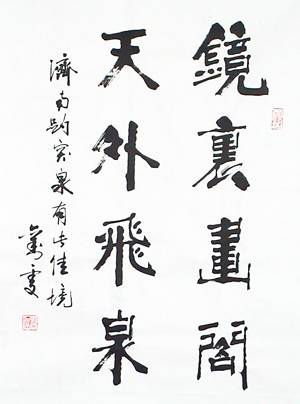 鏡裏畫閣
天外飛泉
濟南趵突泉有此佳境